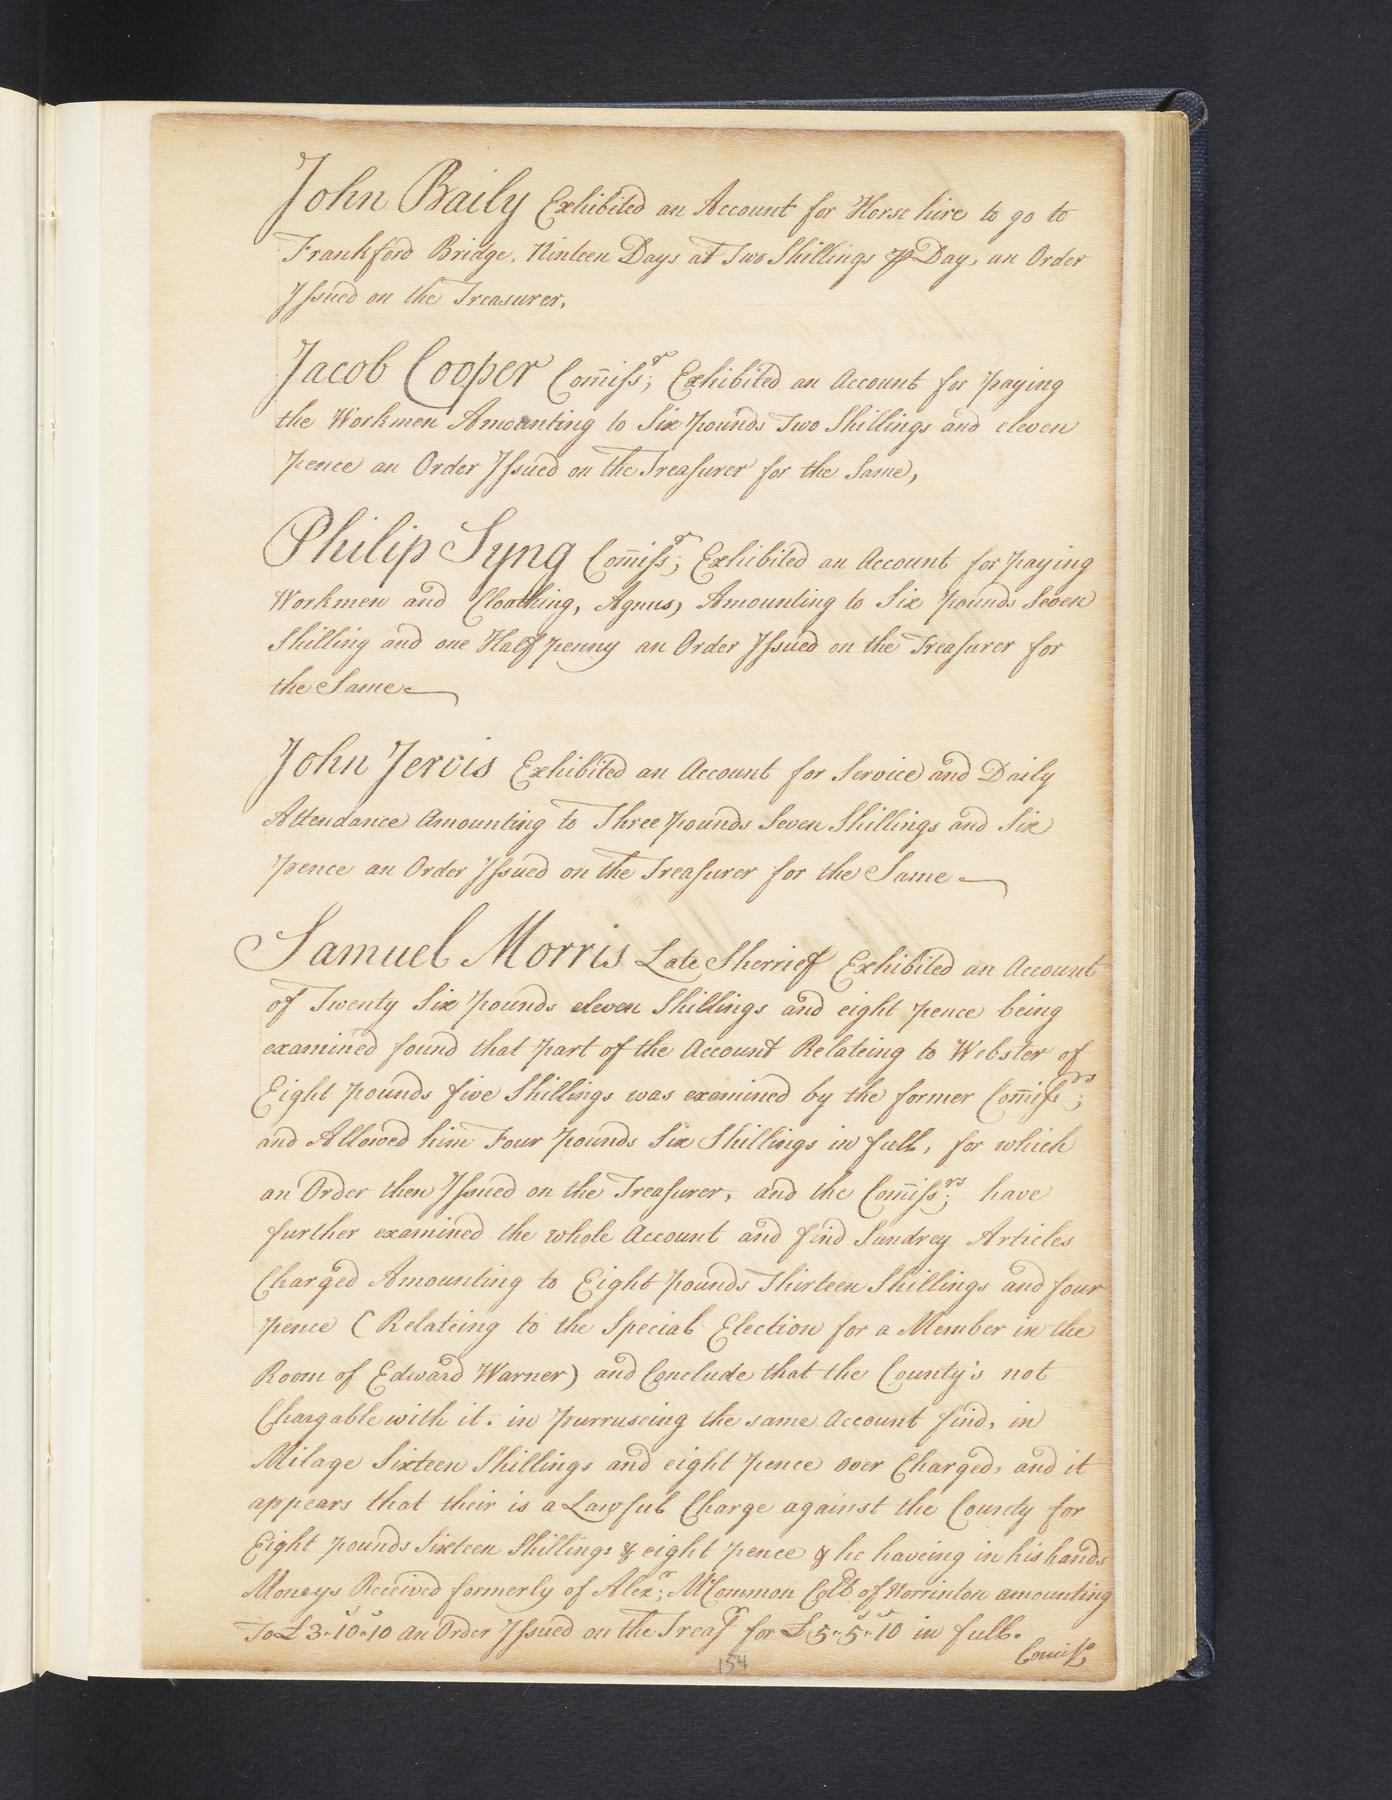 John Baily Exhibited an Account for Horse hire to go to
Frankford Bridge, Ninteen Days at Two Shillings ⅌ Day, an Order
Issued on the Treasurer,
Jacob Cooper Com̄iss:r Exhibited an Account for paying
the Workmen Amounting to Six pounds Two Shillings and eleven
pence an Order Issued on the Treasurer for the Same,
Philip Syng Com̄iss:r Exhibited an Account for paying
Workmen and Cloathing, Agnus, Amounting to Six pounds Seven
Shilling and one Half penny an Order Issued on the Treasurer for
the Same
John Jervis Exhibited an Account for Service and Daily
Attendance Amounting to Three pounds Seven Shillings and Six
pence an Order Issued on the Treasurer for the Same
Samuel Morris Late Sherrief Exhibited an Account
of Twenty Six pounds eleven Shillings and eight pence being
examined found that part of the Account Relateing to Webster of
Eight pounds five Shillings was examined by the former Com̄iss:rs
and Allowed him Four pounds Six Shillings in full, for which
an Order then Issued on the Treasurer, and the Com̄iss:rs have
further examined the whole Account and find Sundrey Articles
Charged Amounting to Eight pounds Thirteen Shillings and four
pence (Relateing to the Special Election for a Member in the
Room of Edward Warner) and Conclude that the County's not
Chargable with it. in purruseing the same Account find, in
Milage Sixteen Shillings and eight pence over Charged, and it
appears that their is a Lawful Charge against the County for
Eight pounds Sixteen Shillings & eight pence & he haveing in his hands
Moneys Received formerly of Alex:r McCommon Coll:r of Norrinton amounting
To £3"10"10 an Order Issued on the Treas:r for £5"5"10 in full.
Comiss:
154